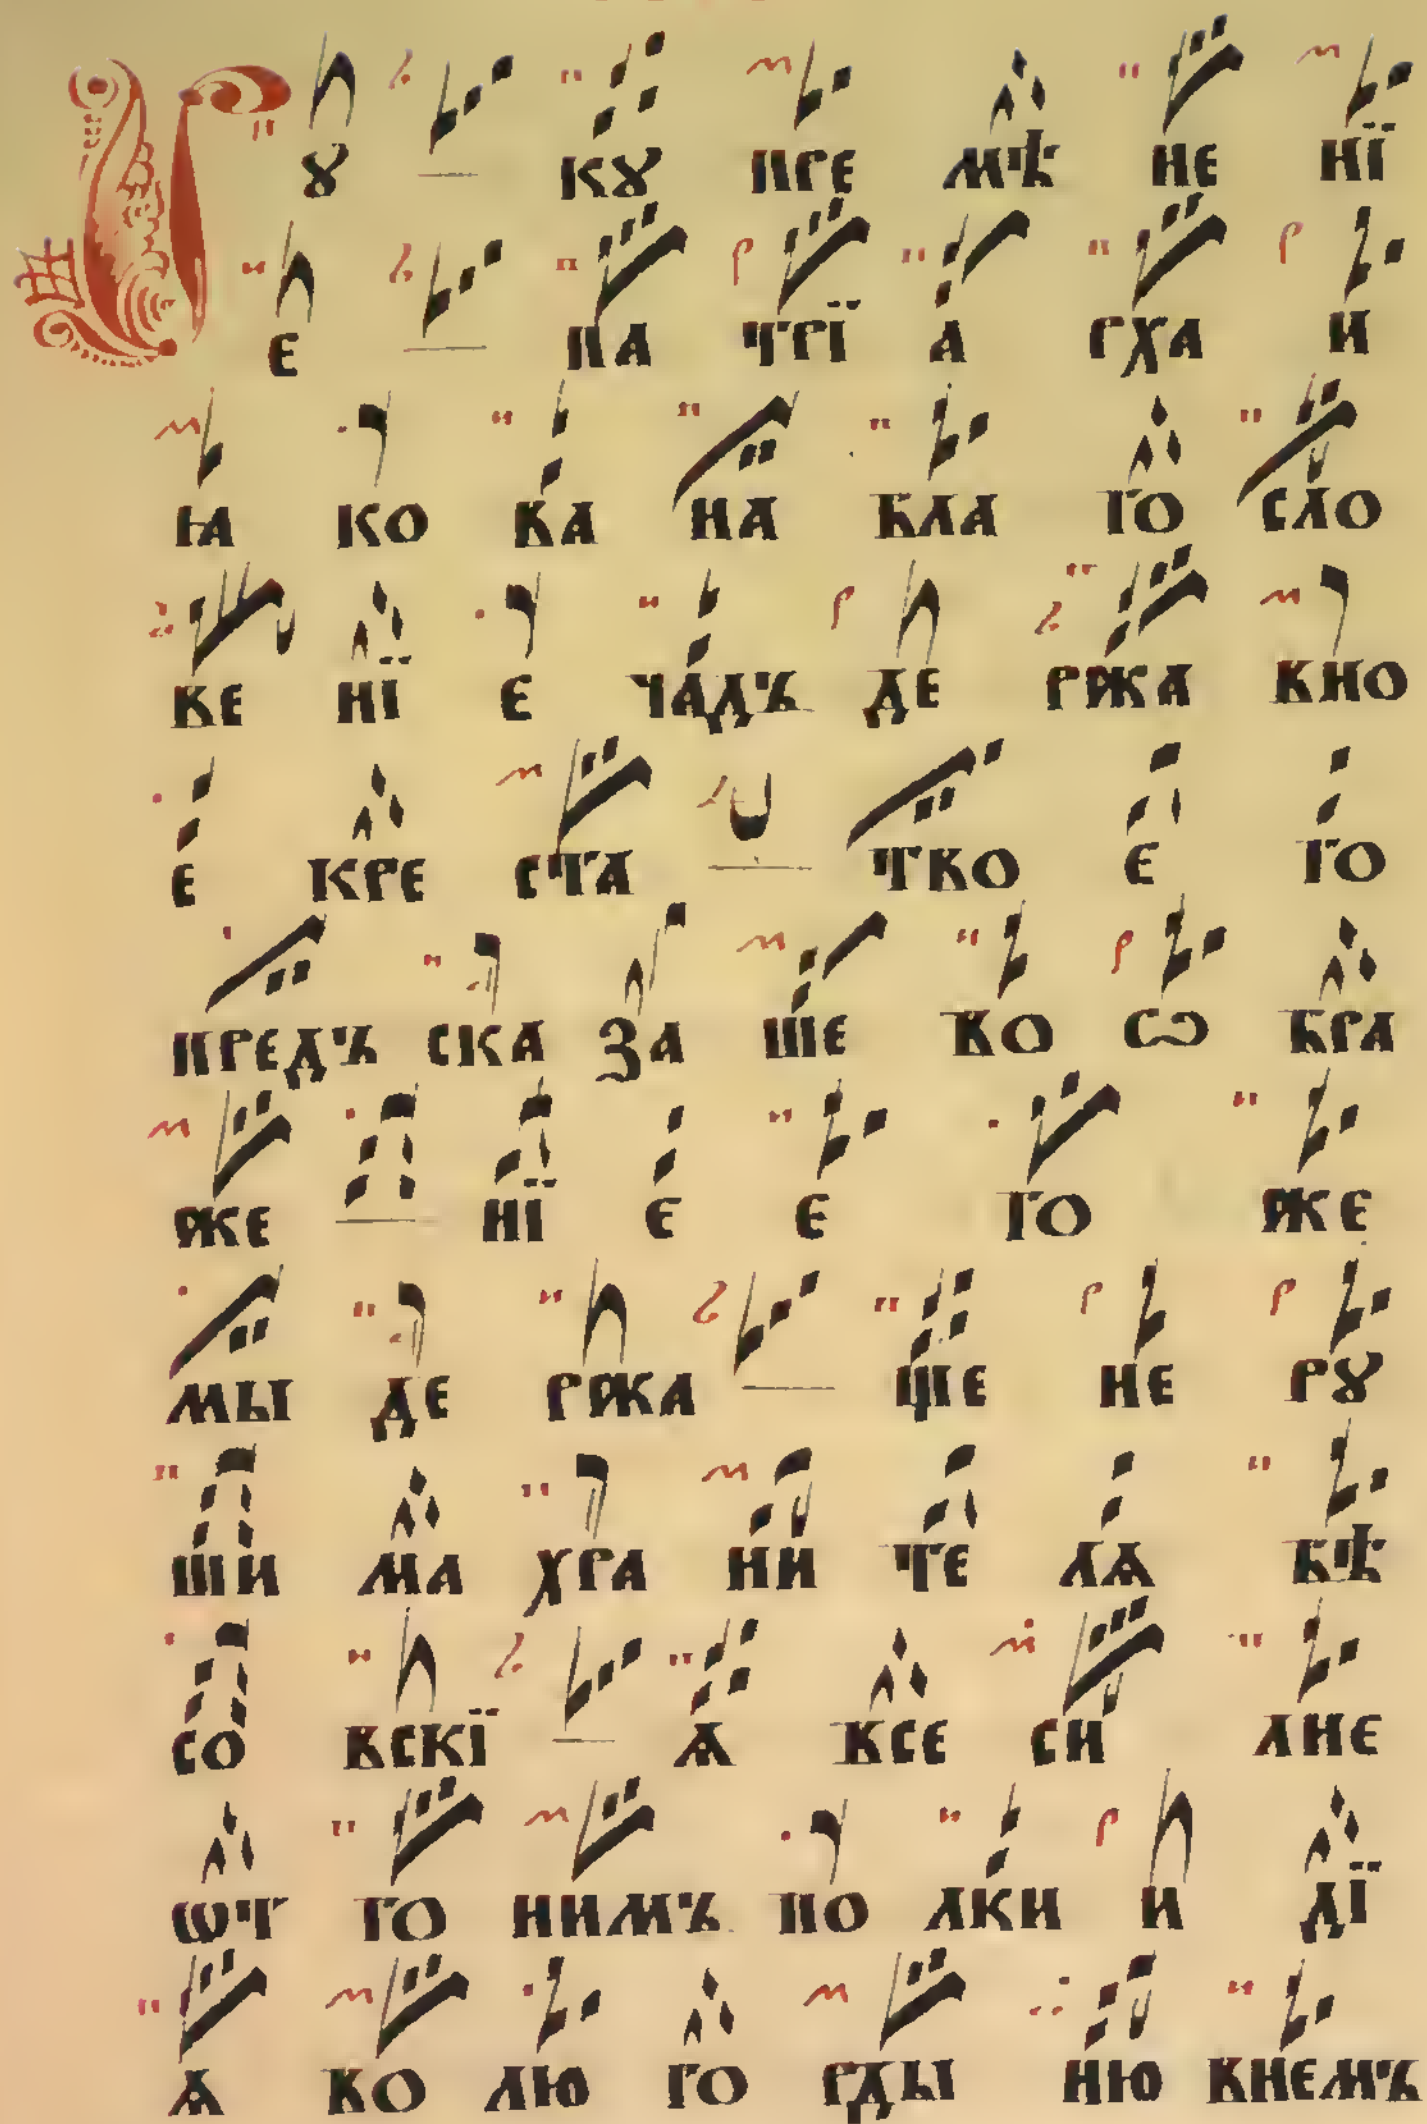 Рꙋ — кꙋ пре мѣ не нї
е — па трї а рха и
ꙗ ко ва на бла го сло
ве нї е чадъ де ржа вно
е кре ста — тво е го
предъ ска за ше во сѻ бра
же — нї е е го же
мы де ржа — ще не рꙋ
ши ма хра ни те лѧ бѣ
со вскї — ѧ всe си лне
ѿ го нимъ по лки и дї
ѧ во лю го рды ню внемъ